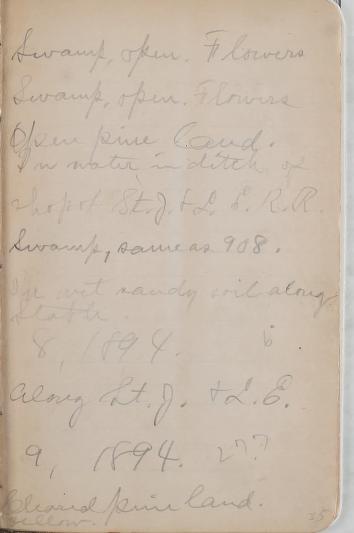 Swamp, open. Flowers
Swamp, open. Flowers
Open pine land.
In water in ditch of
shop of St. J. & L. E. R. R.
Swamp, same as 908.
In wet sandy soil along
8, 1894.
Along St. J. & L. E.
9, 1894.
Cleared pine land.
yellow.